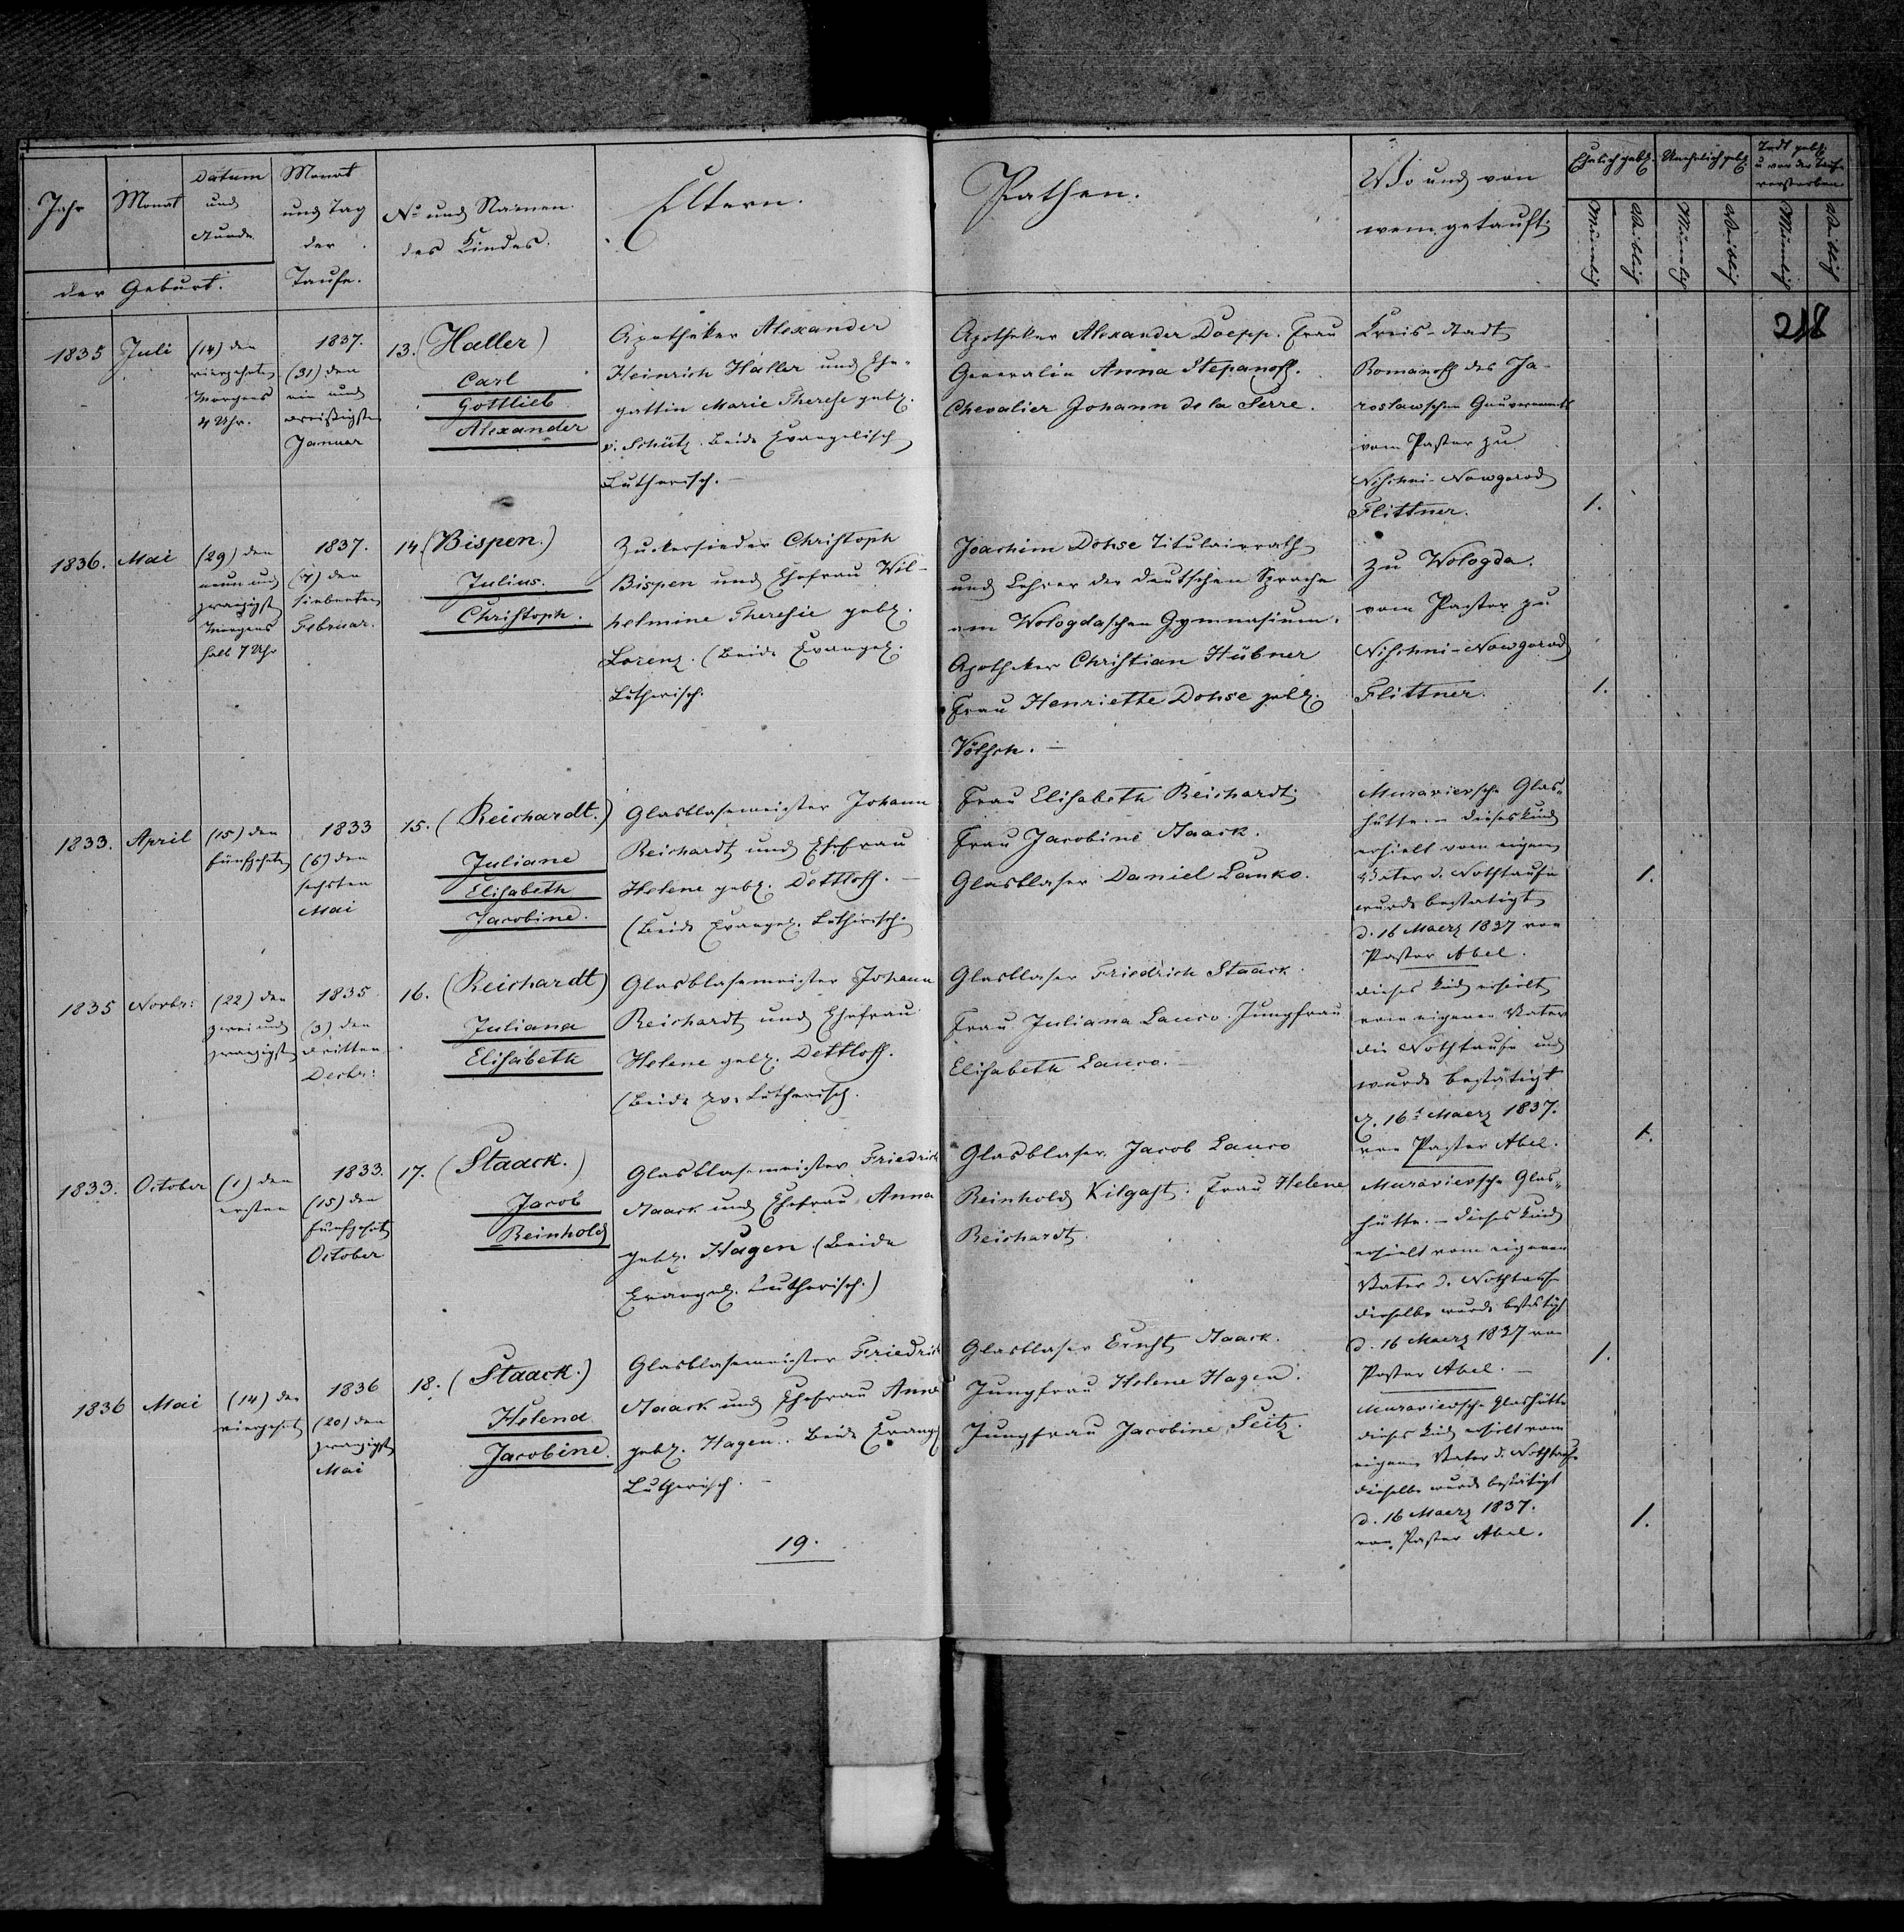 Jahr
Monat
Datum
und
Stunde
der Geburt.
Monat
und Tag
der
Taufe.
No und Namen
des Kindes.
Eltern.
Pathen.
Wo und von
wem getauft
Ehelich geb.
Unehelich geb.
Todt geb.
u vor der Taufe
verstorben
Männlich
Weiblich
Männlich
Weiblich
Männlich
Weiblich
218
1835 Juli
(14) den
vierzehnten
Morgens
4 Uhr.
1837.
(31) den
ein und
dreißigsten
Januar
13. (Haller)
Carl
Gottlieb
Alexander
Apotheker Alexander
Heinrich Haller und Ehe-
gattin Marie Therese geb.
v. Schütz. Beide Evangelisch
Lutherisch. —
Apotheker Alexander Doepp. Frau
Generalin Anna Stepanoff.
Chevalier Johann de la Serre.
Kreis-Stadt
Romanoff des Ja-
roslawschen Gouvernements
vom Pastor zu
Nischni-Nowgorod
Flittner.
1.
1836. Mai
(29) den
neun und
zwanzigst
Morgens
halb 7 Uhr
1837.
(7) den
siebenten
Februar.
14. (Bispen.)
Julius.
Christoph.
Zuckersieder Christoph
Bispen und Ehefrau Wil-
helmine Theresie geb.
Lorenz. (Beide Evangel.
Lutherisch.
Joachim Dohse Titulairrath
und Lehrer der deutschen Sprache
am Wologdaschen Gymnasium.
Apotheker Christian Hübner
Frau Henriette Dohse geb.
Völsch. —
zu Wologda.
vom Pastor zu
Nischni-Nowgorod
Flittner.
1.
1833. April
(15) den
fünfzehnten
1833
(6) den
sechsten
Mai
15. (Reichardt.)
Juliane
Elisabeth
Jacobine.
Glasblasemeister Johann
Reichardt und Ehefrau
Helene geb. Dettloff. —
(Beide Evangel. Lutherisch.
Frau Elisabeth Reichardt
Frau Jacobine Staack.
Glasblaser Daniel Lanko.
Muraviersche Glas-
hütte. — dieses Kind
erhielt vom eigenen
Vater d. Nothtaufe
wurde bestätigt
d. 16 Maerz 1837 von
Pastor Abel.
1.
1835 Novbr:
(22) den
zwei und
zwanzigst
1835
(3) den
dritten
Decbr:
16. (Reichardt)
Juliana
Elisabeth
Glasblasemeister Johann
Reichardt und Ehefrau
Helene geb. Dettloff.
(Beide Ev. Lutherisch.
Glasblaser Friedrich Staack.
Frau Juliana Lauco. Jungfrau
Elisabeth Lauco. —
dieses Kind erhielt
vom eigenen Vater
die Nothtaufe und
wurde bestätigt
d. 16t Maerz 1837.
von Pastor Abel.
1.
1833. October
(1) den
ersten
1833.
(15) den
fünfzehnt
October
17. (Staack.)
Jacob
Reinhold
Glasblasemeister Friedrich
Staack und Ehefrau Anna
geb. Hagen (Beide
Evangel. Lutherisch.)
Glasblaser Jacob Lauco
Reinhold Kilgast. Frau Helene
Reichardt.
Muraviersche Glas-
hütte. — dieses Kind
erhielt vom eigenen
Vater d. Nothtaufe
dieselbe wurde bestätigt
d. 16 Maerz 1837 von
Pastor Abel. —
1.
1836 Mai
(14) den
vierzehnt
1836
(20) den
zwanzigst
Mai
18. (Staack.)
Helena
Jacobine.
Glasblasemeister Friedrich
Staack und Ehefrau Anna
geb. Hagen. Beide Evangel
Lutherisch. —
Glasblaser Ernst Staack.
Jungfrau Helene Hagen.
Jungfrau Jacobine Seitz.
Muraviersche Glashütte
dieses Kind erhielt vom
eigenen Vater d. Nothtaufe
dieselbe wurde bestätigt
d. 16 Maerz 1837.
von Pastor Abel.
1.
19.